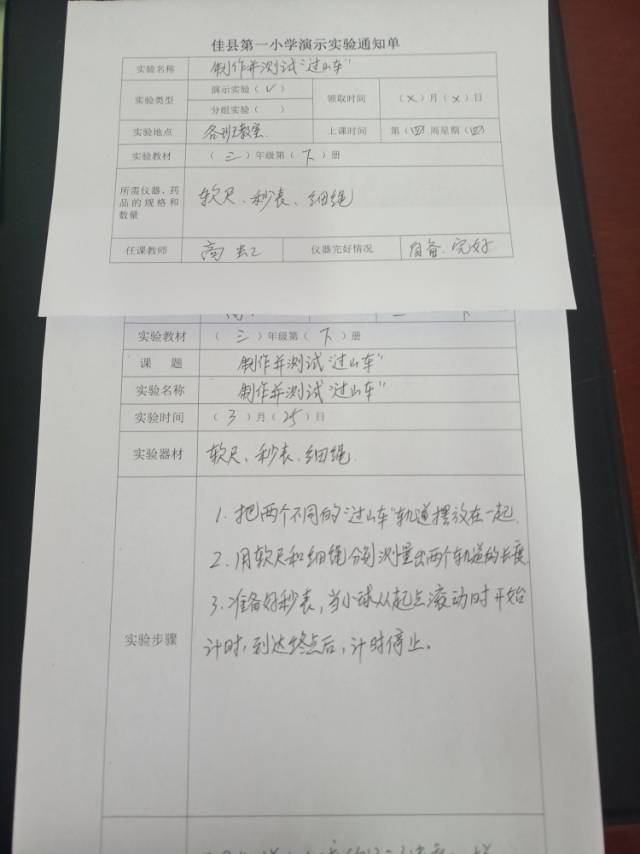 佳县第一小学演示实验通知单
实验名称 制作并测试“过山车”
实验类型 演示实验（√） 领取时间 （×）月（×）日
分组实验（ ）
实验地点 各班教室 上课时间 第（四）周星期（四）
实验教材 （三）年级第（下）册
所需仪器、药品的规格和数量 软尺、秒表、细绳
任课教师 高 仪器完好情况 自备、完好
实验教材 （三）年级第（下）册
课 题 制作并测试“过山车”
实验名称 制作并测试“过山车”
实验时间 （3）月（25）日
实验器材 软尺、秒表、细绳
实验步骤
1. 把两个不同的“过山车”轨道摆放在一起
2. 用软尺和细绳分别测量出两个轨道的长度
3. 准备好秒表，当小球从起点滚动时开始
计时，到达终点后，计时停止。